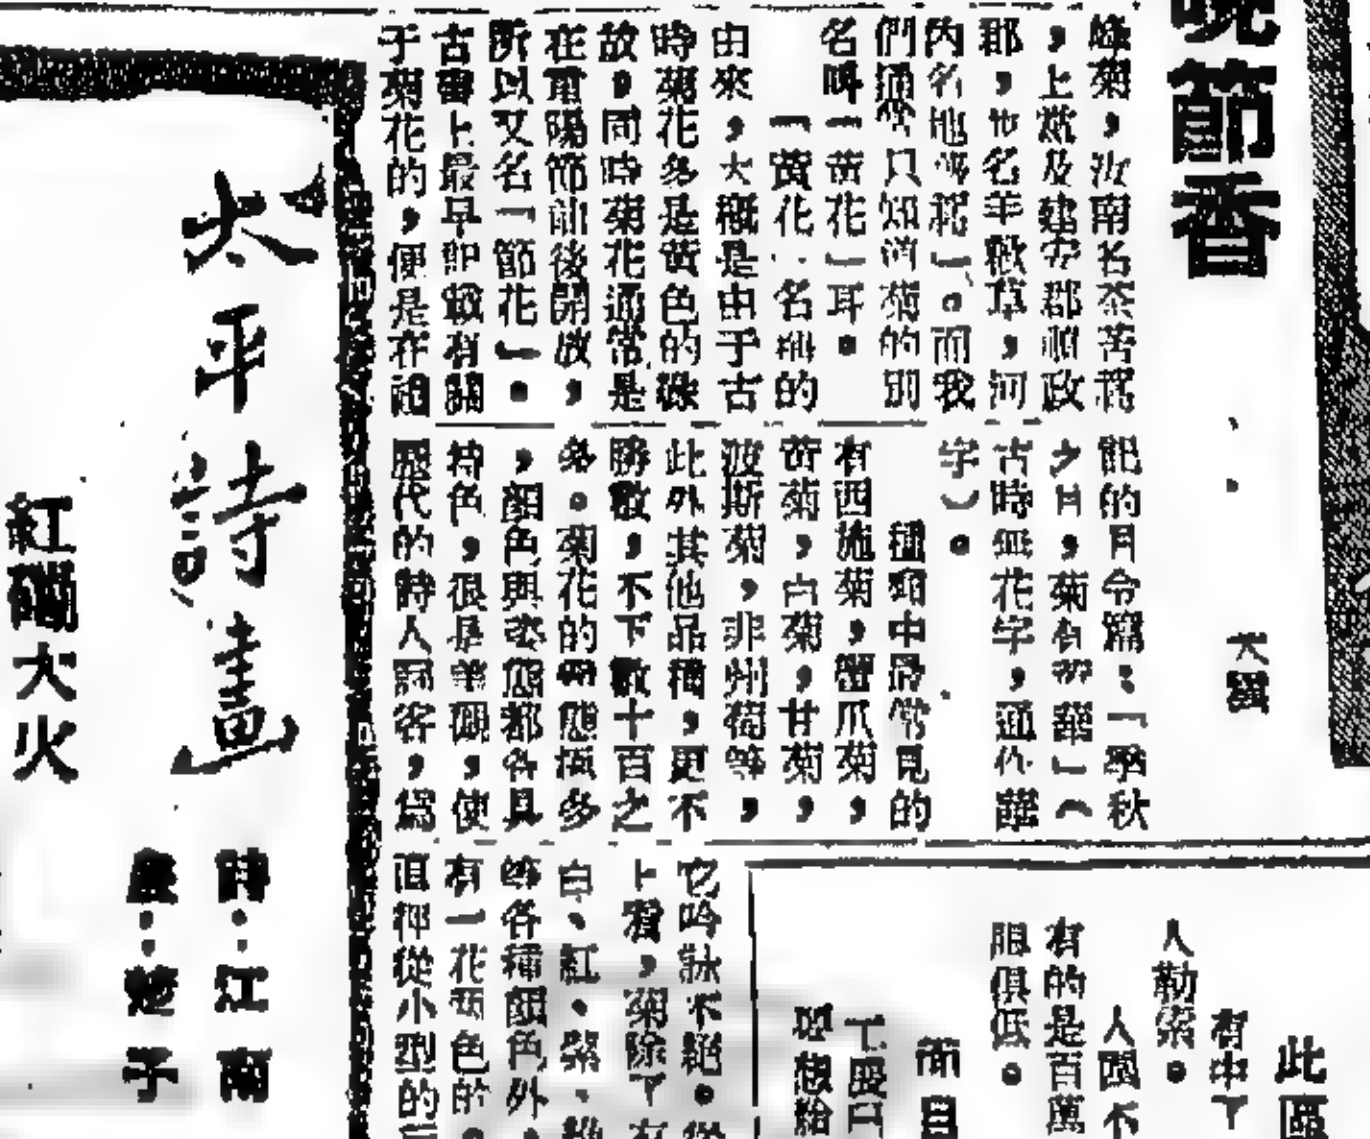 晚節香
大翼
蜂菊，汝南名荼苦蒿
，上黨及建安郡順政
郡，也名羊歡草，河
內名地薇蒿」。而我
們通常只知道菊的別
名叫「黃花」耳。
「黃花」名稱的
由來，大概是由于古
時菊花多是黃色的緣
故，同時菊花通常是
在重陽節前後開放，
所以又名「節花」。
古書上最早記載有關
于菊花的，便是在禮
記的月令篇：「季秋
之月，菊有黃華」（
古時無花字，通作華
字）。
種類中最常見的
有西施菊，蟹爪菊，
黃菊，白菊，甘菊，
波斯菊，非州菊等，
此外其他品種，更不
勝數，不下數十百之
多。菊花的形態極多
，顏色與姿態都各具
特色，很是美麗，使
歷代的詩人詞客，為
它吟詠不絕。從
上看，菊除了有
白、紅、紫、綠
等各種顏色外，
有一花兩色的。
直徑從小型的
太平詩畫
詩：江南
畫：楚子
紅磡大火
此區
有中了
人勒索。
人國不
有的是百萬
眼俱低。